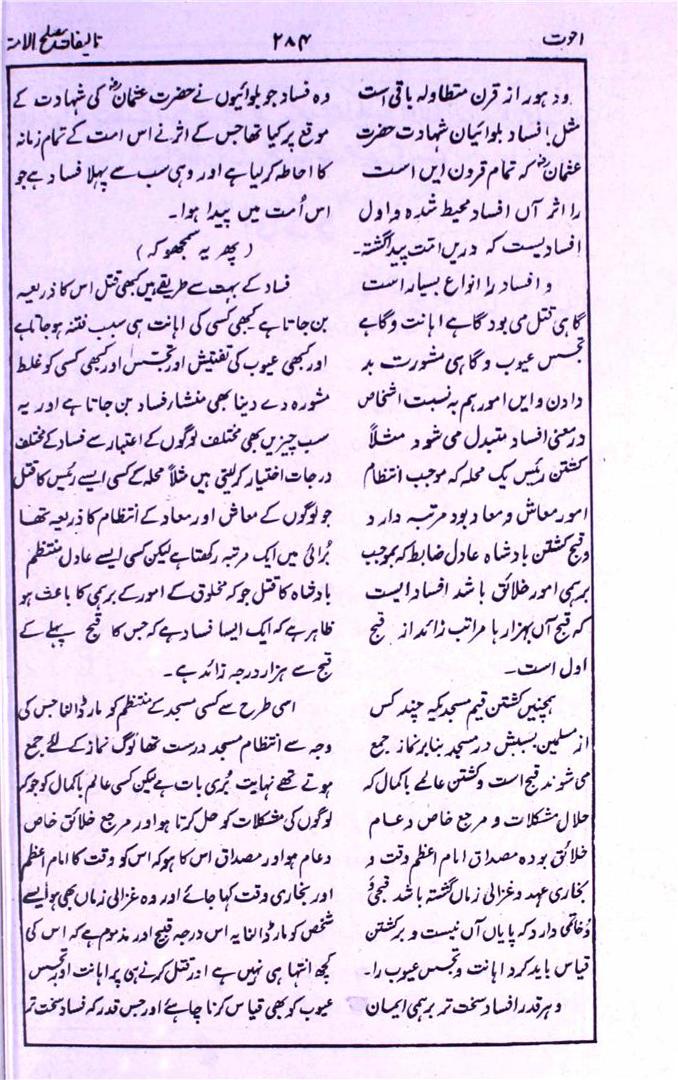 اخوت
۲۸۴
تالیفات مصلح الامت
ود ہور از قرن متطاولہ باقی است
مثل افساد بلوائیان شہادت حضرت
عثمانؓ کہ تمام قرون ایں امت
را اثر آں افساد محیط شدہ و اول
افسادیست کہ دریں امت پیدا گشتہ۔
و افساد را انواع بسیار است
گاہی قتل می بود گاہے اہانت و گاہے
تجسس عیوب و گاہی مشورت بد
دادن و ایں امور ہم بہ نسبت اشخاص
در معنی افساد متبدل می شود مثلاً
کشتن رئیس یک محلہ کہ موجب انتظام
امور معاش و معاد بود مرتبہ دارد
و قبح کشتن بادشاہ عادل ضابط کہ بموجب
برہمی امور خلائق باشد افسادایست
کہ قبح آں بہزار ہا مراتب زائد از قبح
اول است۔
ہمچنیں کشتن قیم مسجد یکہ چند کس
از مسلمین بسبش در مسجد بنا بر نماز جمع
می شوند قبیح است و کشتن عالمے باکمال کہ
حلال مشکلات و مرجع خاص و عام
خلائق بودہ مصداق امام اعظم وقت و
بخاری عہد و غزالی زماں گشتہ باشد قبحی و
وخامتی دارد کہ پایاں آں نیست و بر کشتن
قیاس باید کرد اہانت و تجسس عیوب را۔
و ہر قدر افساد سخت تر برہمی ایمان
وہ فساد جو بلوائیوں نے حضرت عثمانؓ کی شہادت کے
موقع پر کیا تھا جس کے اثر نے اس امت کے تمام زمانہ
کا احاطہ کر لیا ہے اور وہی سب سے پہلا فساد ہے جو
اس اُمت میں پیدا ہوا۔
(پھر یہ سمجھو کہ)
فساد کے بہت سے طریقے ہیں کبھی قتل اس کا ذریعہ
بن جاتا ہے کبھی کسی کی اہانت ہی سبب فتنہ ہو جاتا ہے
اور کبھی عیوب کی تفتیش اور تجسس اور کبھی کسی کو غلط
مشورہ دے دینا بھی منشار فساد بن جاتا ہے اور یہ
سب چیزیں بھی مختلف لوگوں کے اعتبار سے فساد کے مختلف
درجات اختیار کر لیتی ہیں مثلاً محلہ کے کسی ایسے رئیس کا قتل
جو لوگوں کے معاش اور معاد کے انتظام کا ذریعہ تھا
بُرائی میں ایک مرتبہ رکھتا ہے لیکن کسی ایسے عادل منتظم
بادشاہ کا قتل جو کہ مخلوق کے امور کے برہمی کا باعث ہو
ظاہر ہے کہ ایک ایسا فساد ہے کہ جس کا قبح پہلے کے
قبح سے ہزار درجہ زائد ہے۔
اسی طرح سے کسی مسجد کے منتظم کو مار ڈالنا جس کی
وجہ سے انتظام مسجد درست تھا لوگ نماز کے لئے جمع
ہوتے تھے نہایت بُری بات ہے لیکن کسی عالم باکمال کو جو کہ
لوگوں کی مشکلات کو حل کرتا ہو اور مرجع خلائق خاص
و عام ہو اور مصداق اس کا ہو کہ اس کو وقت کا امام اعظم
اور بخاری وقت کہا جائے اور وہ غزالی زماں بھی ہو ایسے
شخص کو مار ڈالنا یہ اس درجہ قبیح اور مذموم ہے کہ اس کی
کچھ انتہا ہی نہیں ہے اور قتل کرنے ہی پر اہانت اور تجسس
عیوب کو بھی قیاس کرنا چاہیئے اور جس قدر کہ فساد سخت تر